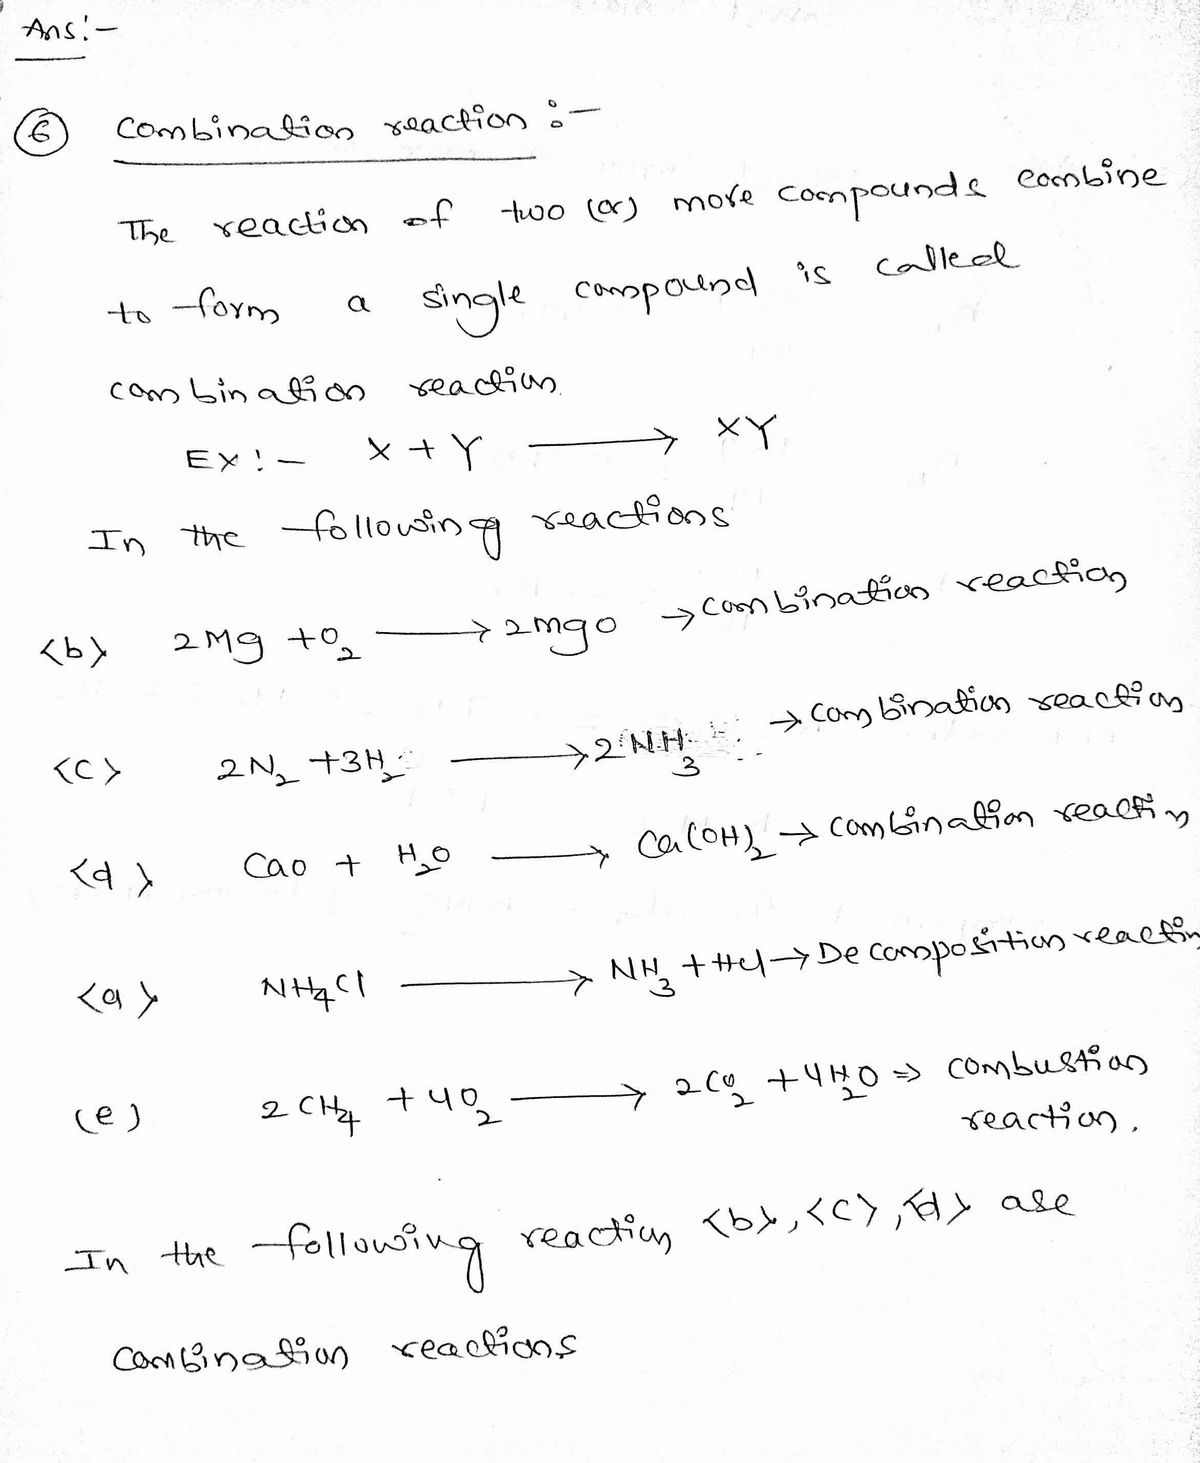 Ans:-
6 Combination reaction :-
The reaction of two (or) more compounds combine
to form a single compound is called
combination reaction.
EX:- X + Y ⟶ XY
In the following reactions
<b> 2Mg + O₂ ⟶ 2mgo → combination reaction
<c> 2N₂ + 3H₂ ⟶ 2NH₃ → combination reaction
<d> Cao + H₂O ⟶ Ca(OH)₂ → combination reaction
<a> NH4Cl ⟶ NH₃ + Hcl → Decomposition reaction
(e) 2CH4 + 4O₂ ⟶ 2CO₂ + 4H₂O ⇒ combustion
reaction.
In the following reaction <b>, <c>, <d> are
Combination reactions